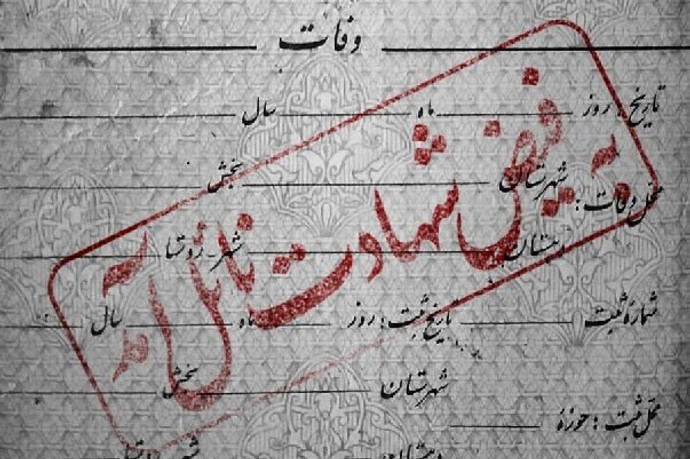 وفات
تاریخ: روز ماه سال
محل وفات: شهرستان بخش
دهستان شهر-روستا
شماره ثبت تاریخ ثبت: روز ماه سال
محل ثبت: حوزه شهرستان بخش
دهستان شهر-روستا
به فیض شهادت نائل آمد